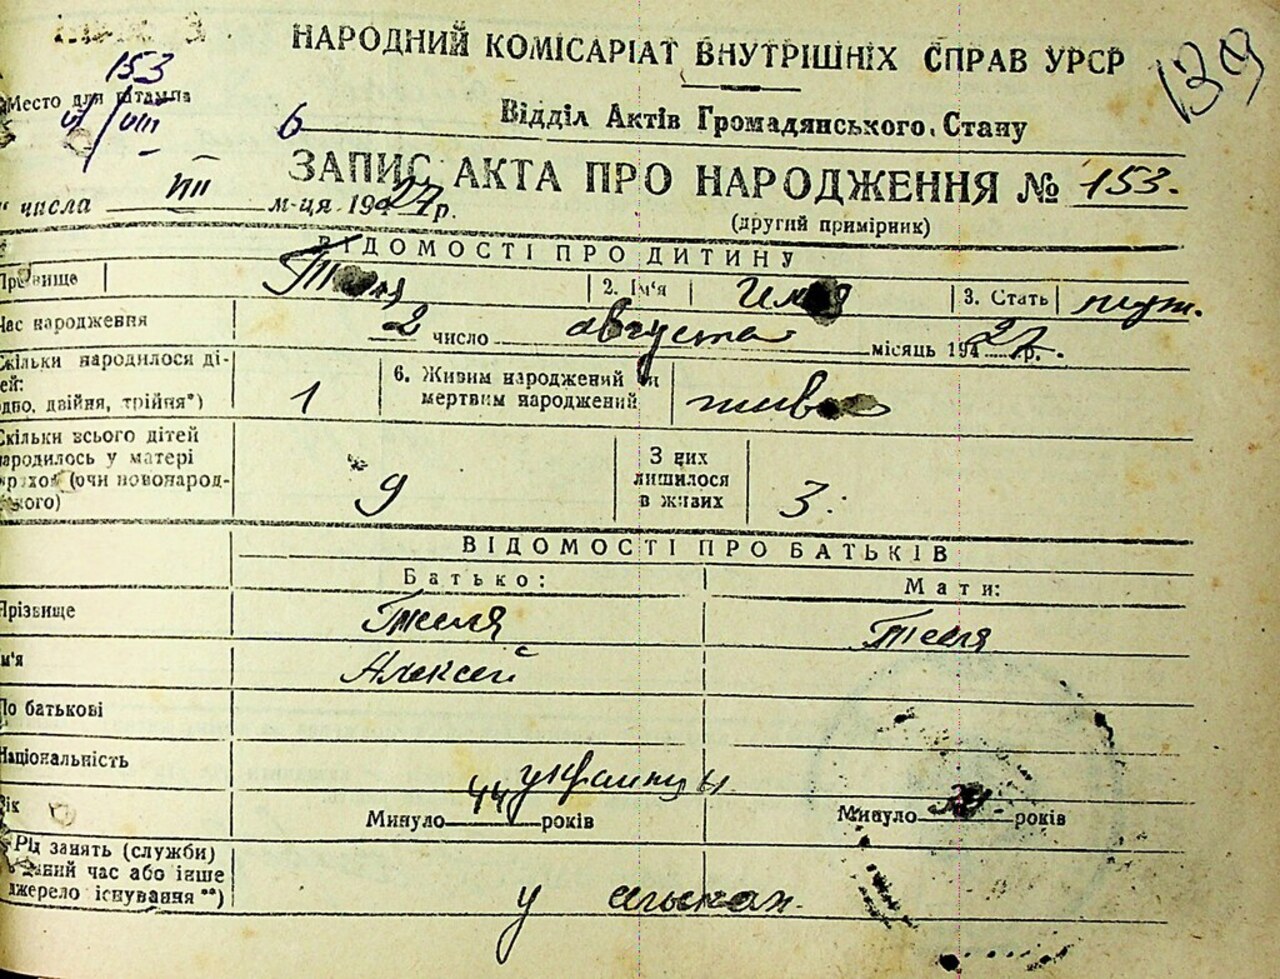 139
153
Место для штампа
VI/VIII
НАРОДНИЙ КОМІСАРІАТ ВНУТРІШНІХ СПРАВ УРСР
6
Відділ Актів Громадянського Стану
ЗАПИС АКТА ПРО НАРОДЖЕННЯ № 153.
(другий примірник)
" числа VIII м-ця 1927 р.
ВІДОМОСТІ ПРО ДИТИНУ
Прізвище 2. Ім'я Илья 3. Стать муж.
Час народження 2 число августа місяць 194 27 р.
Скільки народилося ді-
ей:
одно, двійня, трійня*) 1
6. Живим народжений чи
мертвим народжений живое
Скільки всього дітей
народилось у матері
(очи новонарод-
ного) 9
З них
лишилося
в живих 3.
ВІДОМОСТІ ПРО БАТЬКІВ
Батько: Мати:
Прізвище Теля Теля
Ім'я Алексей
По батькові
Національність украинцы
Вік Минуло 44 років Минуло років
Рід занять (служби)
даний час або інше
джерело існування **)